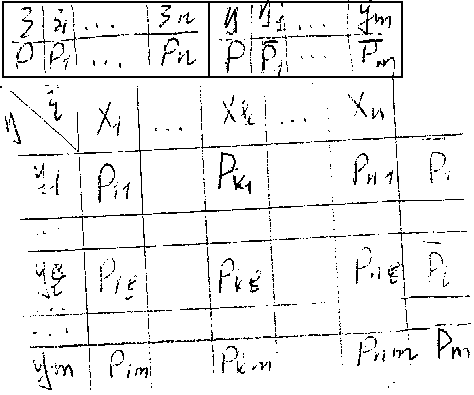 ξ ξ₁ ... ξn y y₁ ... ym
P P₁ ... Pn P̄ P̄₁ ... P̄m
y ξ X₁ ... Xk ... Xn
y₁ P₁₁ Pk₁ Pn₁ P̄₁
...
yℓ P₁ℓ Pkℓ Pnℓ P̄ℓ
...
ym P₁m Pkm Pnm Pm